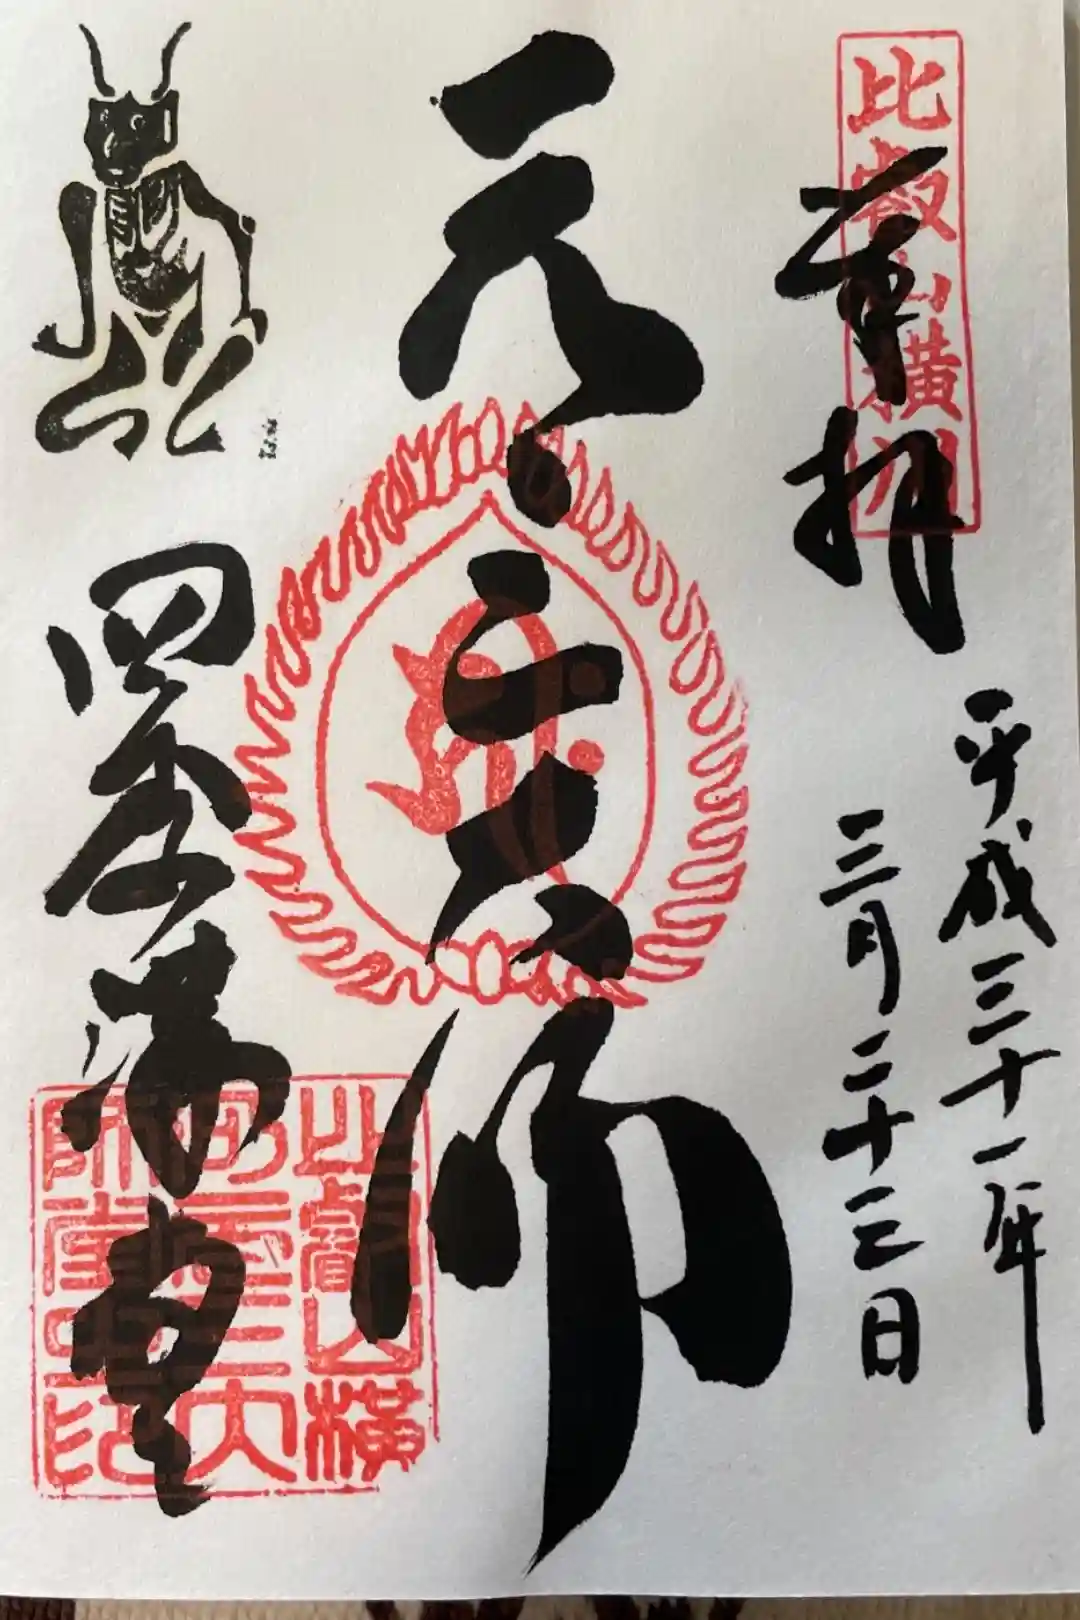 比叡山横川
奉拝
平成三十一年
三月二十三日
元三大師
四季講堂
比叡山横
川元三大
師堂之印